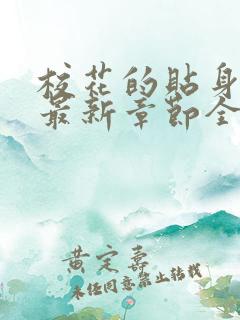 校花的贴身
最新章节全
黄定寿
未经同意禁止转载